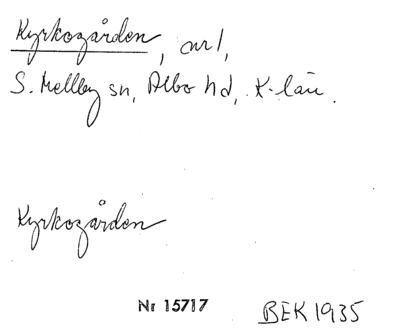 Kyrkogården, ar l,
S. Mellby sn, Albo hd, K-län.
Kyrkogården
Nr 15717 BEK 1935